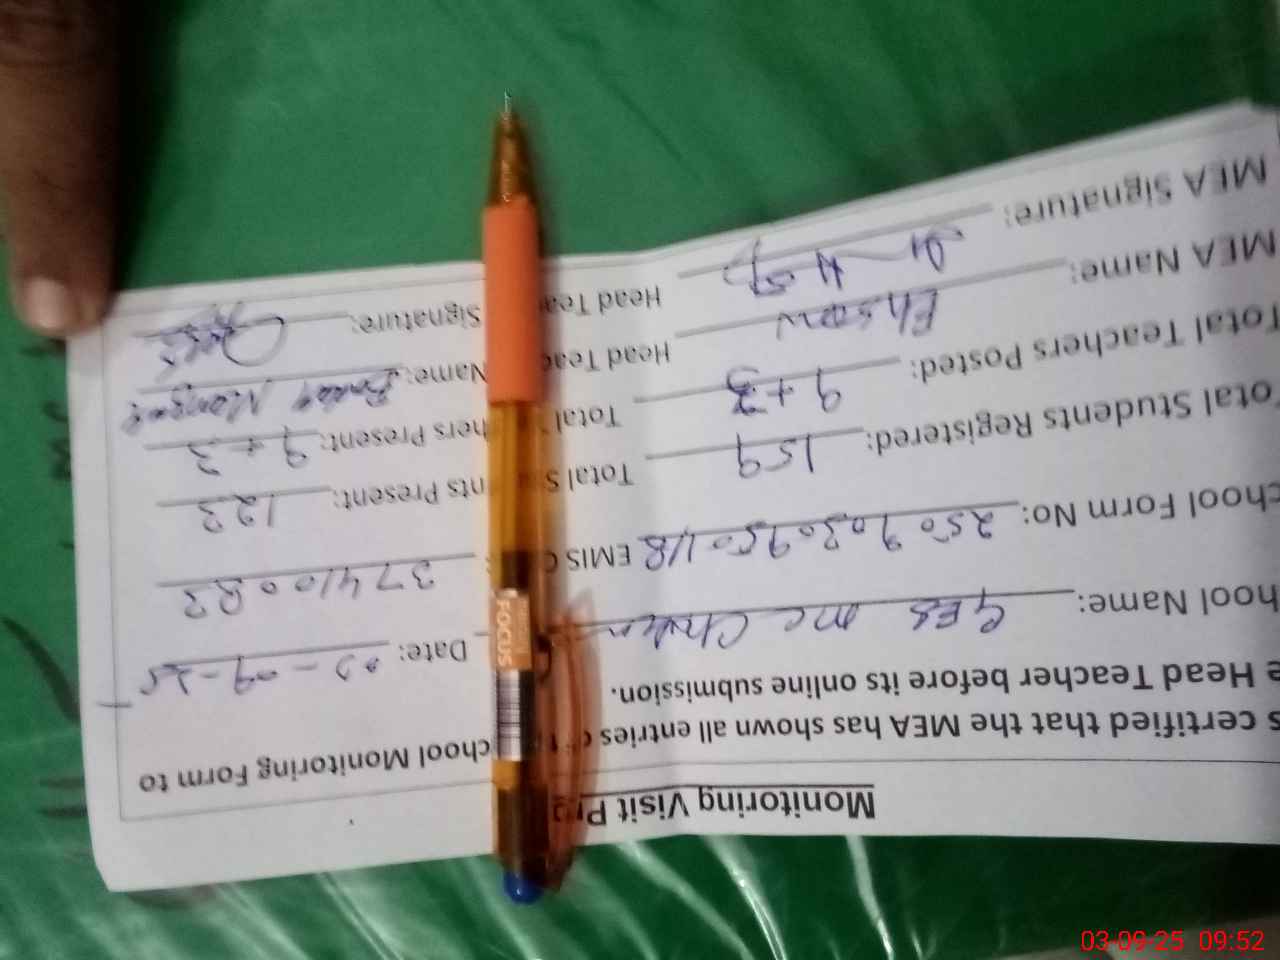 Monitoring Visit Pr
s certified that the MEA has shown all entries chool Monitoring Form to
e Head Teacher before its online submission.
hool Name: GES MC Date: 03-09-25
chool Form No: EMIS C : 37410083
otal Students Registered: 159 Total S nts Present: 123
Total Teachers Posted: 9+3 Total hers Present: 9+3
MEA Name: Ehsan Head Teac Name:
MEA Signature: Head Tea Signature:
FOCUS
03-09-25 09:52